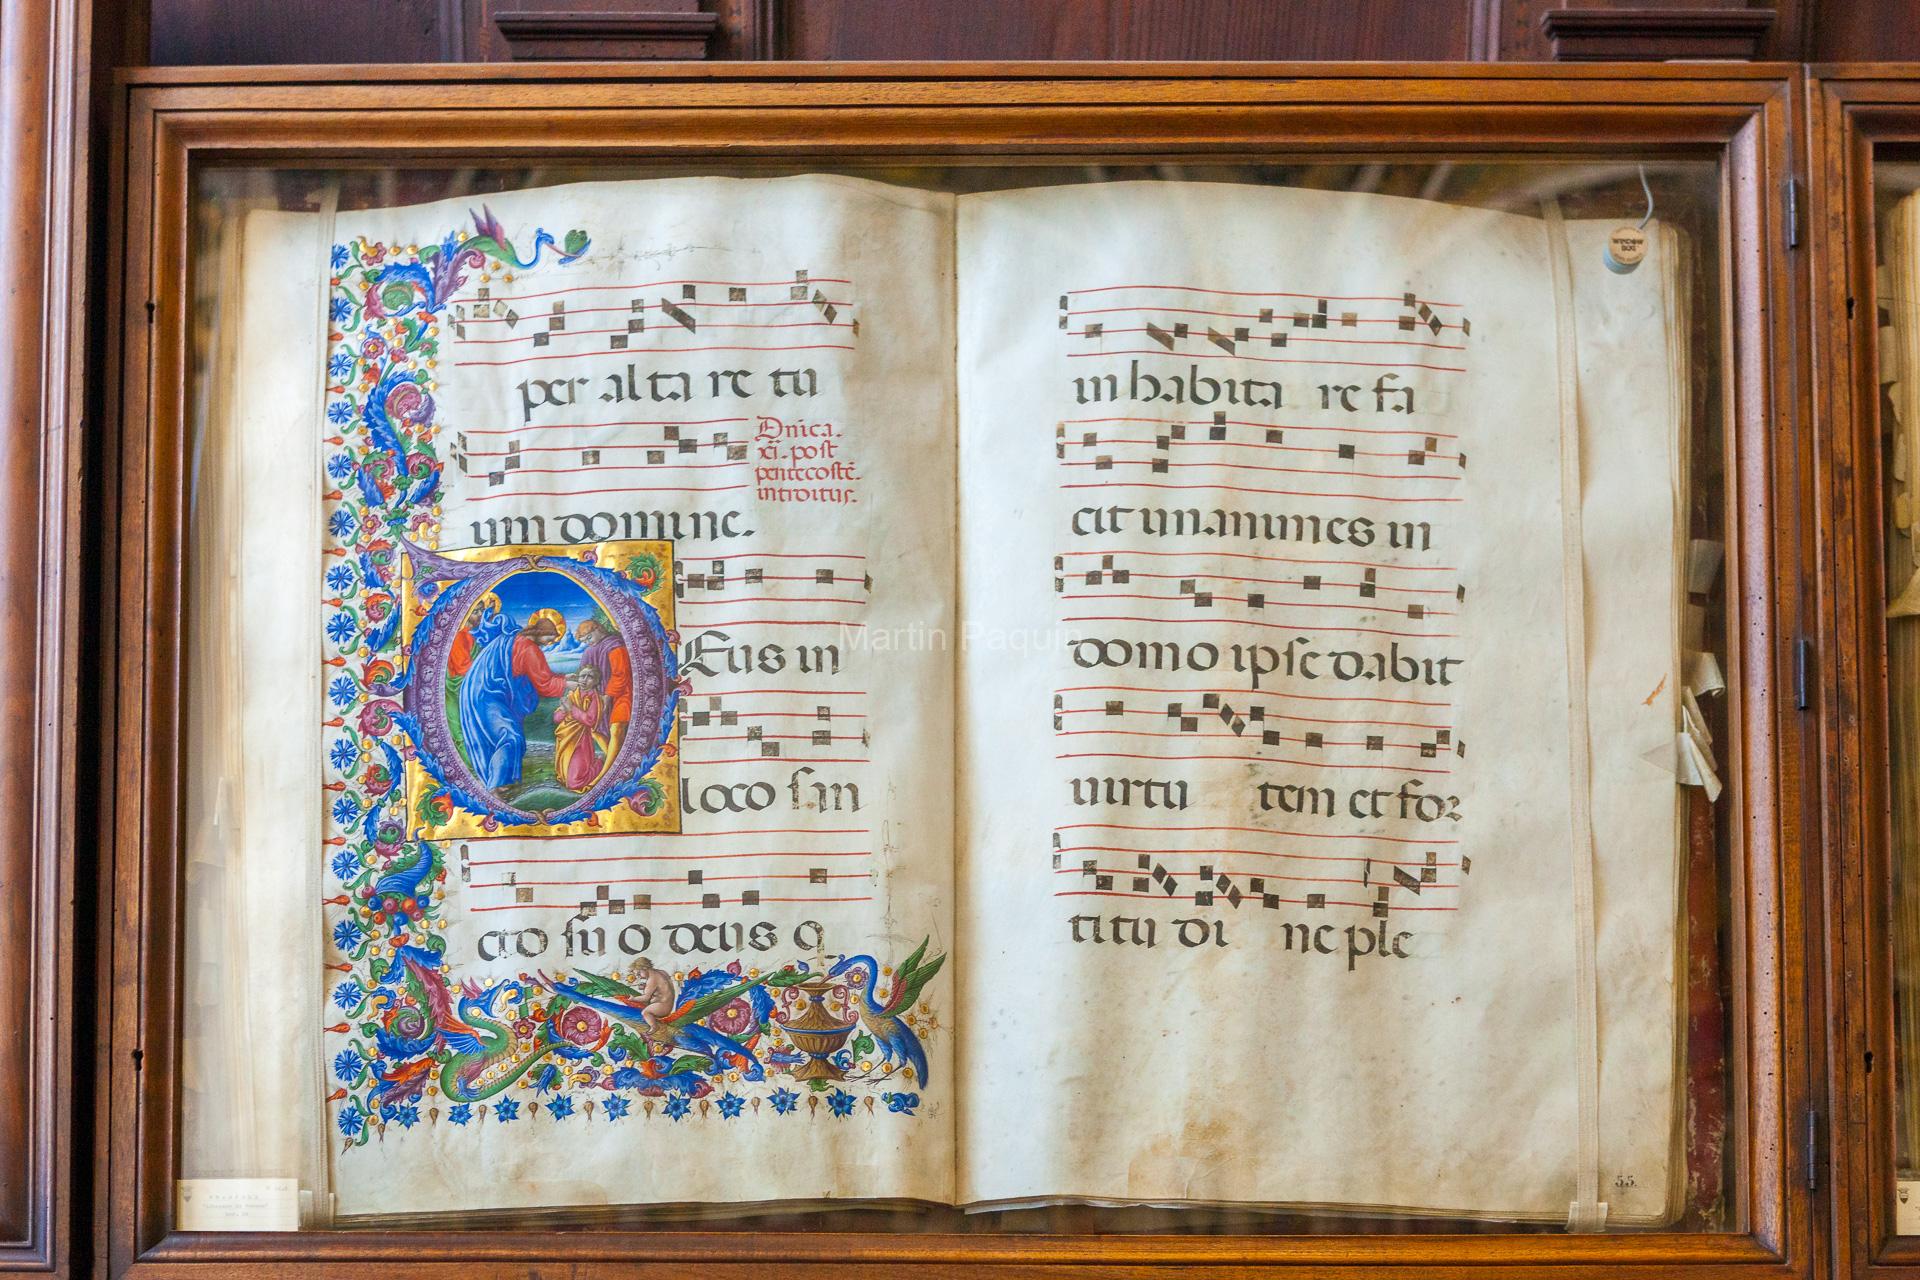 per alta re tu
um domine.
Dnica.
xi. post
pentecostē.
introitus.
Eus in
loco san
cto suo deus q
inhabita re fa
cit unanimes in
domo ipse dabit
uirtu tem et for
titu di ne ple
55.
WINDOW
BUG
Martin Paquin